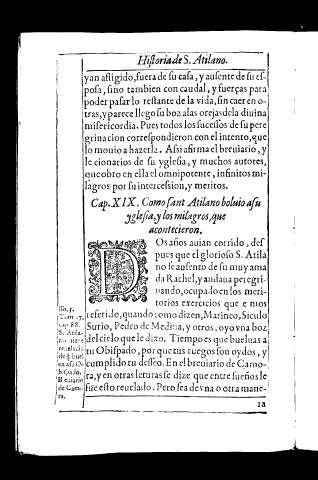 Historia de S. Atilano.
yan afligido, fuera de su casa, y ausente de su es-
posa, sino tambien con caudal, y fuerças para
poder pasar lo restante de la vida, sin caer en o-
tras, y parece llego su boz a las orejas de la diuina
misericordia. Pues todos los sucessos de su pere
grinacion correspondieron con el intento, que
lo mouio a hazerla. Assi afirma el breuiario, y
lecionarios de su yglesia, y muchos autores,
que obro en ella el omnipotente, infinitos mi-
lagros por su intercession, y meritos.
Cap. XIX. Como sant Atilano boluio a su
yglesia, y los milagros, que
acontecieron.
DOs años auian corrido, des
pues que el glorioso S. Atila
no se ausento de su muy ama
da Rachel, y andaua peregri-
nando, ocupalo en los meri-
torios exercicios que e mos
referido, quando como dizen, Marineo, Siculo
Surio, Pedro de Medina, y otros, oyo vna boz
del cielo que le dixo. Tiempo es que bueluas a
tu Obispado, por que tus ruegos son oydos, y
cumplido tu desseo. En el breuiario de Camo-
ra, y en otras leturas se dize que entre sueños le
fue esto reuelado. Pero sea de vna o otra mane-
ra
Tom. 7.
cap. 88.
S. Atila-
no tiene
reuelaciō
de q̄ buel
ua a su O-
bispado.
Breuiario
de Camo-
ra.